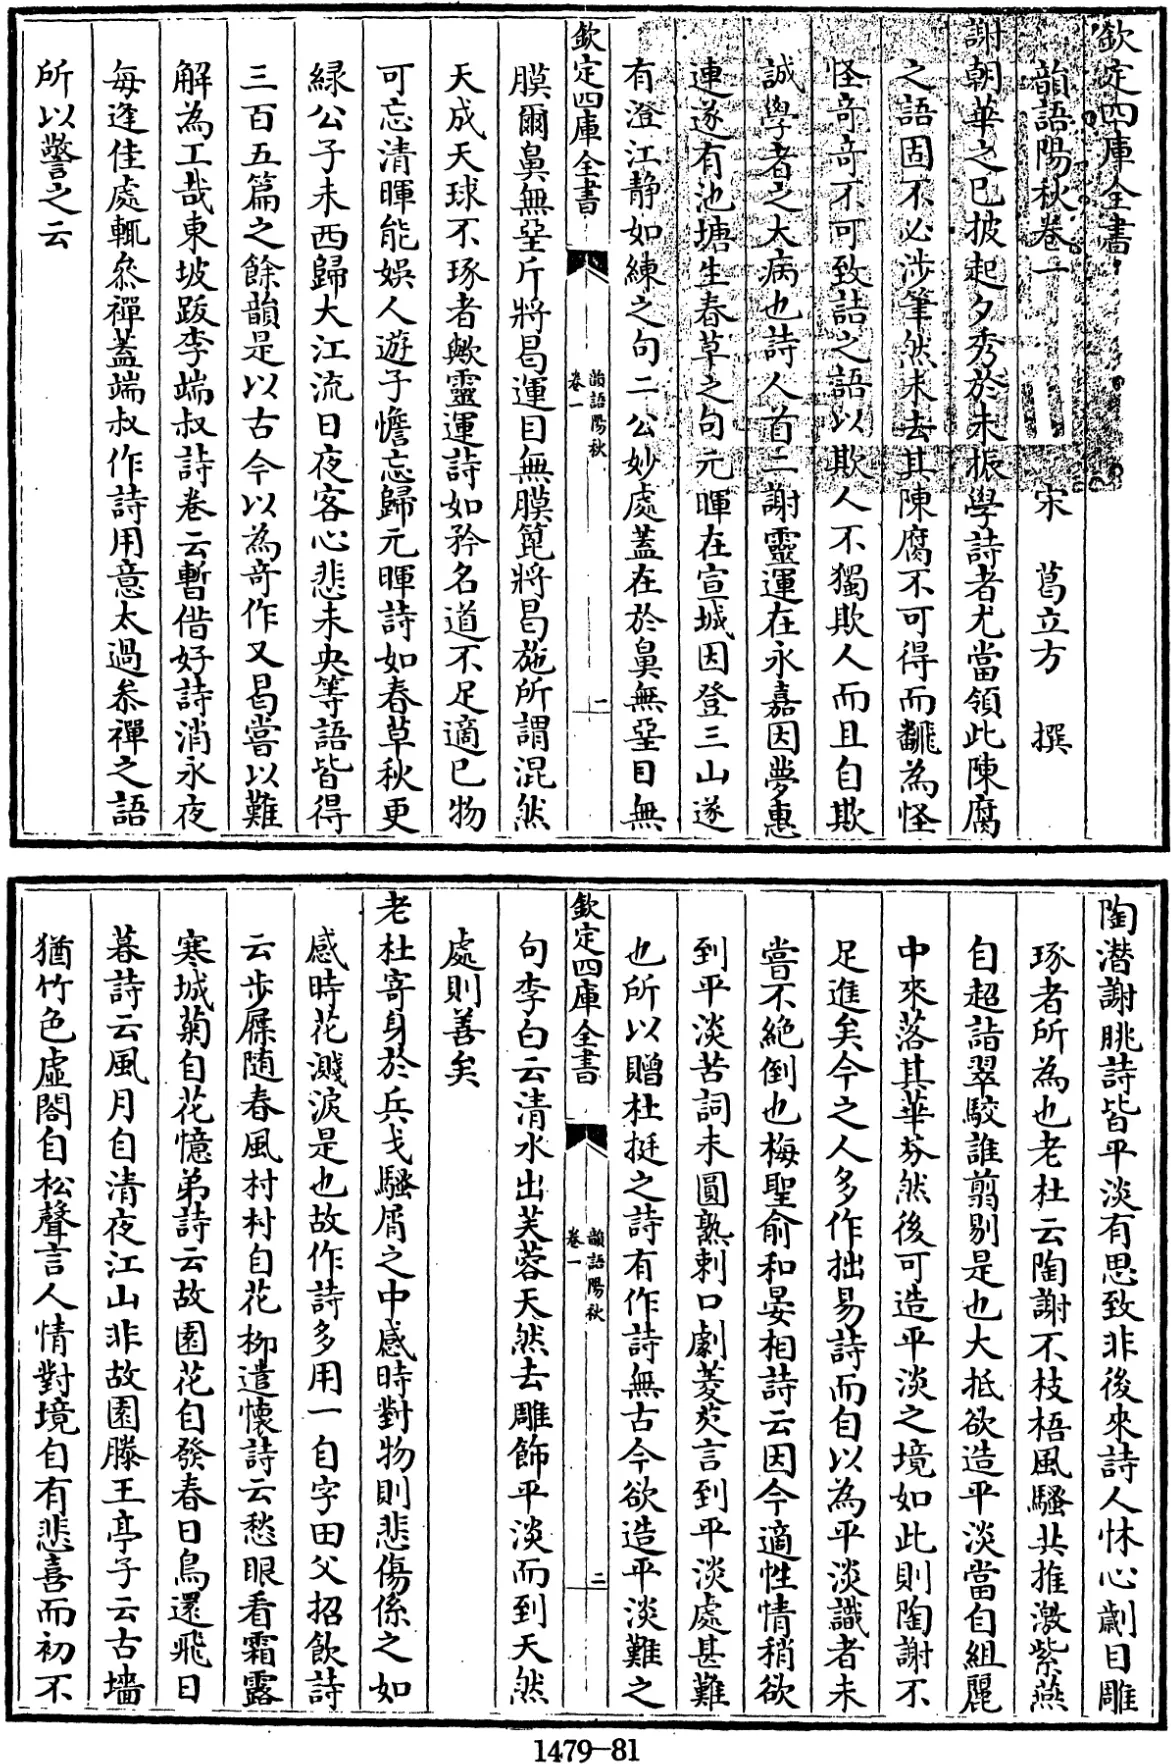 欽定四庫全書
韻語陽秋卷一
宋 葛立方 撰
謝朝華之已披起夕秀於未振學詩者尤當領此陳腐
之語固不必涉筆然未去其陳腐不可得而飜為怪
怪奇奇不可致詰之語以欺人不獨欺人而且自欺
誠學者之大病也詩人首二謝靈運在永嘉因夢惠
連遂有池塘生春草之句元暉在宣城因登三山遂
有澄江静如練之句二公妙處葢在於鼻無堊目無
欽定四庫全書
韻語陽秋
卷一
一
膜爾鼻無堊斤將曷運目無膜篦將曷施所謂混然
天成天球不琢者歟靈運詩如矜名道不足適己物
可忘清暉能娯人遊子憺忘歸元暉詩如春草秋更
緑公子未西歸大江流日夜客心悲未央等語皆得
三百五篇之餘韻是以古今以為奇作又曷嘗以難
解為工哉東坡跋李端叔詩卷云暫借好詩消永夜
每逢佳處輒叅禪葢端叔作詩用意太過叅禪之語
所以警之云
陶潜謝朓詩皆平淡有思致非後來詩人怵心劌目雕
琢者所為也老杜云陶謝不枝梧風騷共推激紫燕
自超詣翠駮誰翦剔是也大抵欲造平淡當自組麗
中來落其華芬然後可造平淡之境如此則陶謝不
足進矣今之人多作拙易詩而自以為平淡識者未
嘗不絶倒也梅聖俞和晏相詩云因今適性情稍欲
到平淡苦詞未圓熟刺口劇菱芡言到平淡處甚難
也所以贈杜挺之詩有作詩無古今欲造平淡難之
欽定四庫全書
韻語陽秋
卷一
二
句李白云清水出芙蓉天然去雕飾平淡而到天然
處則善矣
老杜寄身於兵戈騷屑之中感時對物則悲傷係之如
感時花濺淚是也故作詩多用一自字田父招飲詩
云步屧随春風村村自花柳遣懷詩云愁眼看霜露
寒城菊自花憶弟詩云故園花自發春日鳥還飛日
暮詩云風月自清夜江山非故園滕王亭子云古墻
猶竹色虛閣自松聲言人情對境自有悲喜而初不
1479-81